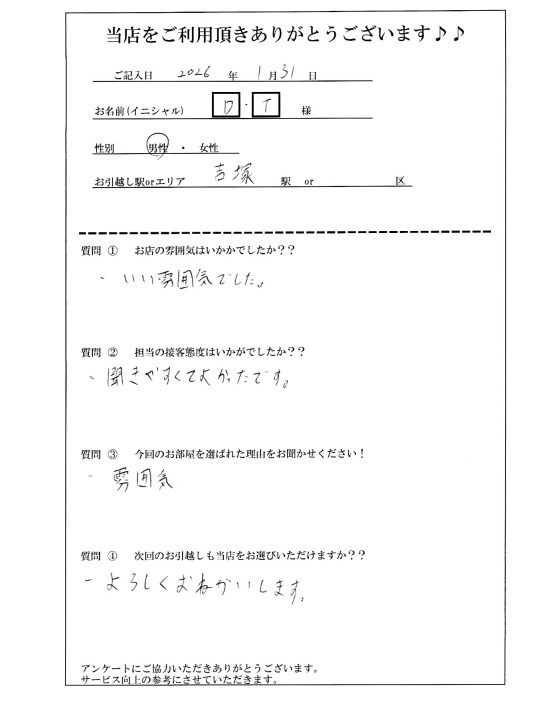 当店をご利用頂きありがとうございます♪♪
ご記入日 2026 年 1月31日
お名前(イニシャル) D・T 様
性別 男性 ・ 女性
お引越し駅orエリア 吉塚 駅 or 区
質問 ① お店の雰囲気はいかかでしたか??
- いい雰囲気でした。
質問 ② 担当の接客態度はいかがでしたか??
- 聞きやすくてよかったです。
質問 ③ 今回のお部屋を選ばれた理由をお聞かせください!
- 雰囲気
質問 ④ 次回のお引越しも当店をお選びいただけますか??
- よろしくおねがいします。
アンケートにご協力いただきありがとうございます。
サービス向上の参考にさせていただきます。